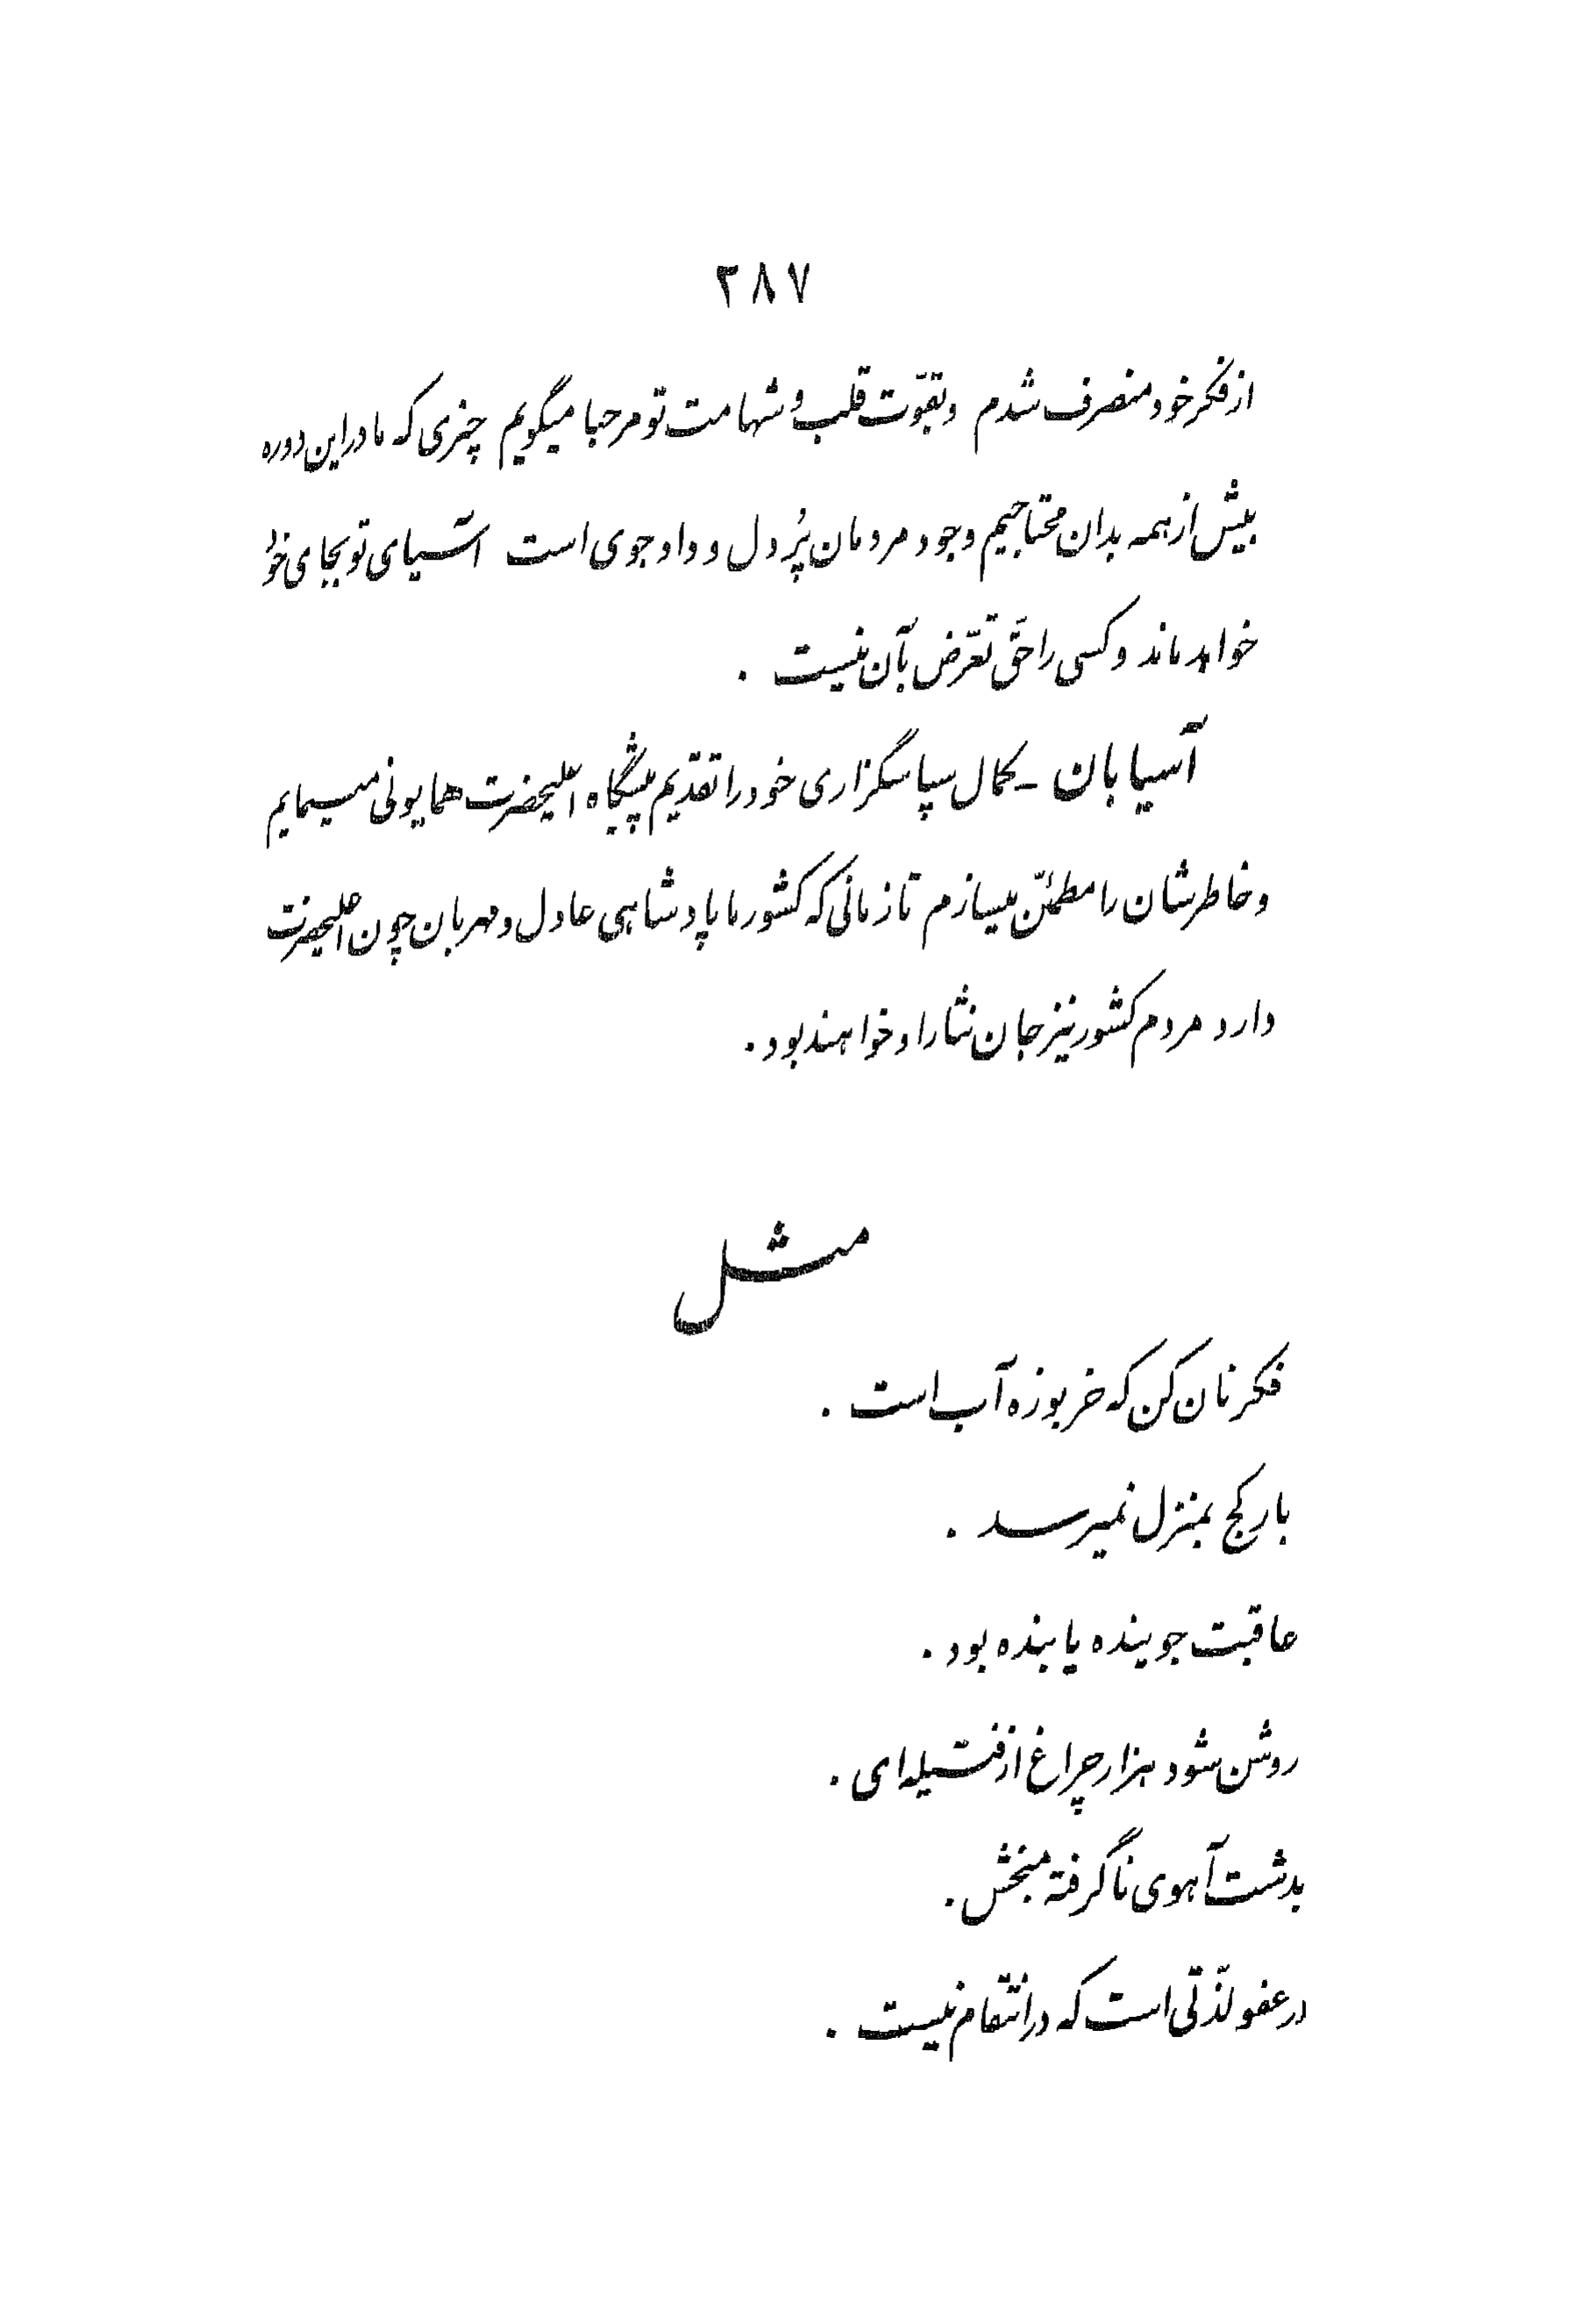 ۲۸۷
از فکر خود منصرف شدم و بقوّت قلب و شهامت تو مرحبا میگویم چیزی که ما در این دوره
بیش از همه بدان محتاجیم وجود مردمان پُر دل و داد جوی است آسیای تو بجای خود
خواهد ماند و کسی را حقّ تعرّض بآن نیست .
آسیابان - کمال سپاسگزاری خود را تقدیم پیشگاه اعلیحضرت همایونی مینمایم
و خاطرشان را مطمئنّ میسازم تا زمانی که کشور ما پادشاهی عادل و مهربان چون اعلیحضرت
دارد مردم کشور نیز جان نثار او خواهند بود .
مثل
فکر نان کن که خربوزه آب است .
بار کج بمنزل نمیرسد .
عاقبت جوینده یابنده بود .
روشن شود هزار چراغ از فتیله‌ای .
بدشت آهوی ناگرفته مبخش .
در عفو لذّتی است که در انتقام نیست .